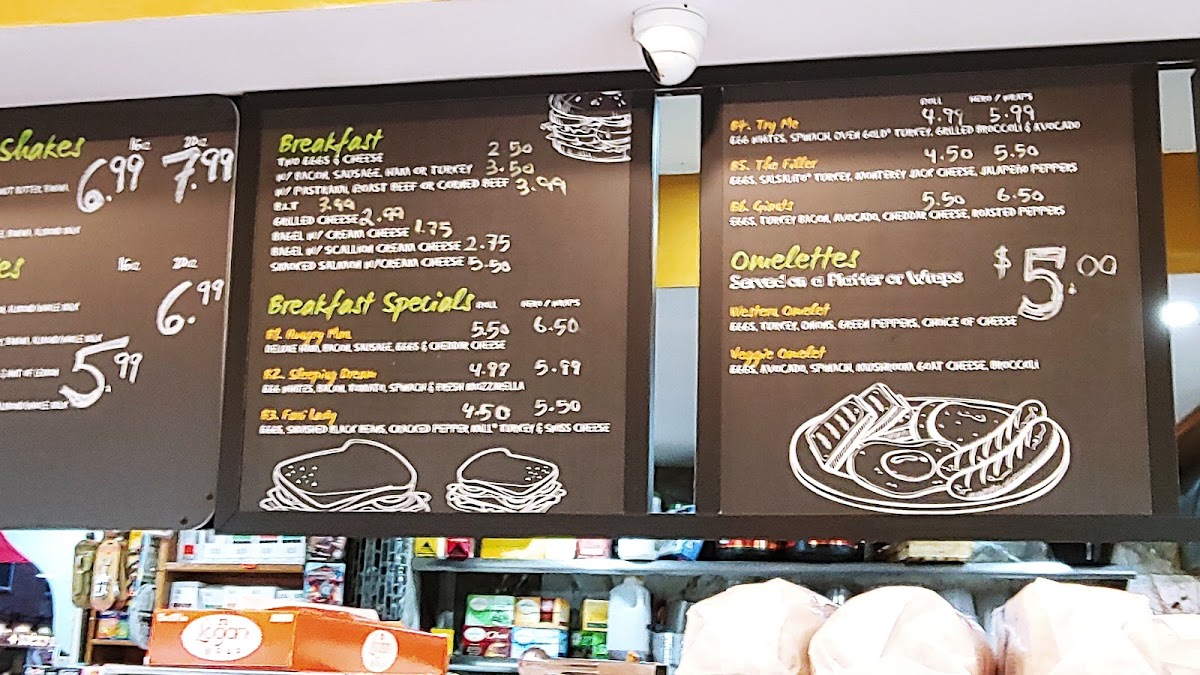 Shakes 16oz 20oz
6.99 7.99
16oz 20oz
6.99
5.99
Breakfast
TWO EGGS & CHEESE 2 50
W/ BACON, SAUSAGE, HAM OR TURKEY 3.50
W/ PASTRAMI, ROAST BEEF OR CORNED BEEF 3.99
B.L.T 3.99
GRILLED CHEESE 2.99
BAGEL W/ CREAM CHEESE 1.75
BAGEL W/ SCALLION CREAM CHEESE 2.75
SMOKED SALMON W/CREAM CHEESE 5.50
Breakfast Specials ROLL HERO / WRAPS
B1. Hungry Man 5.50 6.50
DELUXE HAM, BACON, SAUSAGE, EGGS & CHEDDAR CHEESE
B2. Sleeping Dream 4.99 5.99
EGG WHITES, BACON, TOMATO, SPINACH & FRESH MOZZARELLA
B3. Foxi Lady 4.50 5.50
EGGS, SMASHED BLACK BEANS, CRACKED PEPPER MILL® TURKEY & SWISS CHEESE
ROLL HERO / WRAPS
B4. Try Me 4.99 5.99
EGG WHITES, SPINACH, OVEN GOLD® TURKEY, GRILLED BROCCOLI & AVOCADO
B5. The Filler 4.50 5.50
EGGS, SALSALITO® TURKEY, MONTEREY JACK CHEESE, JALAPEÑO PEPPERS
B6. Giants 5.50 6.50
EGGS, TURKEY BACON, AVOCADO, CHEDDAR CHEESE, ROASTED PEPPERS
Omelettes $5.00
Served on a Platter or Wraps
Western Omelet
EGGS, TURKEY, ONIONS, GREEN PEPPERS, CHOICE OF CHEESE
Veggie Omelet
EGGS, AVOCADO, SPINACH, MUSHROOM, GOAT CHEESE, BROCCOLI